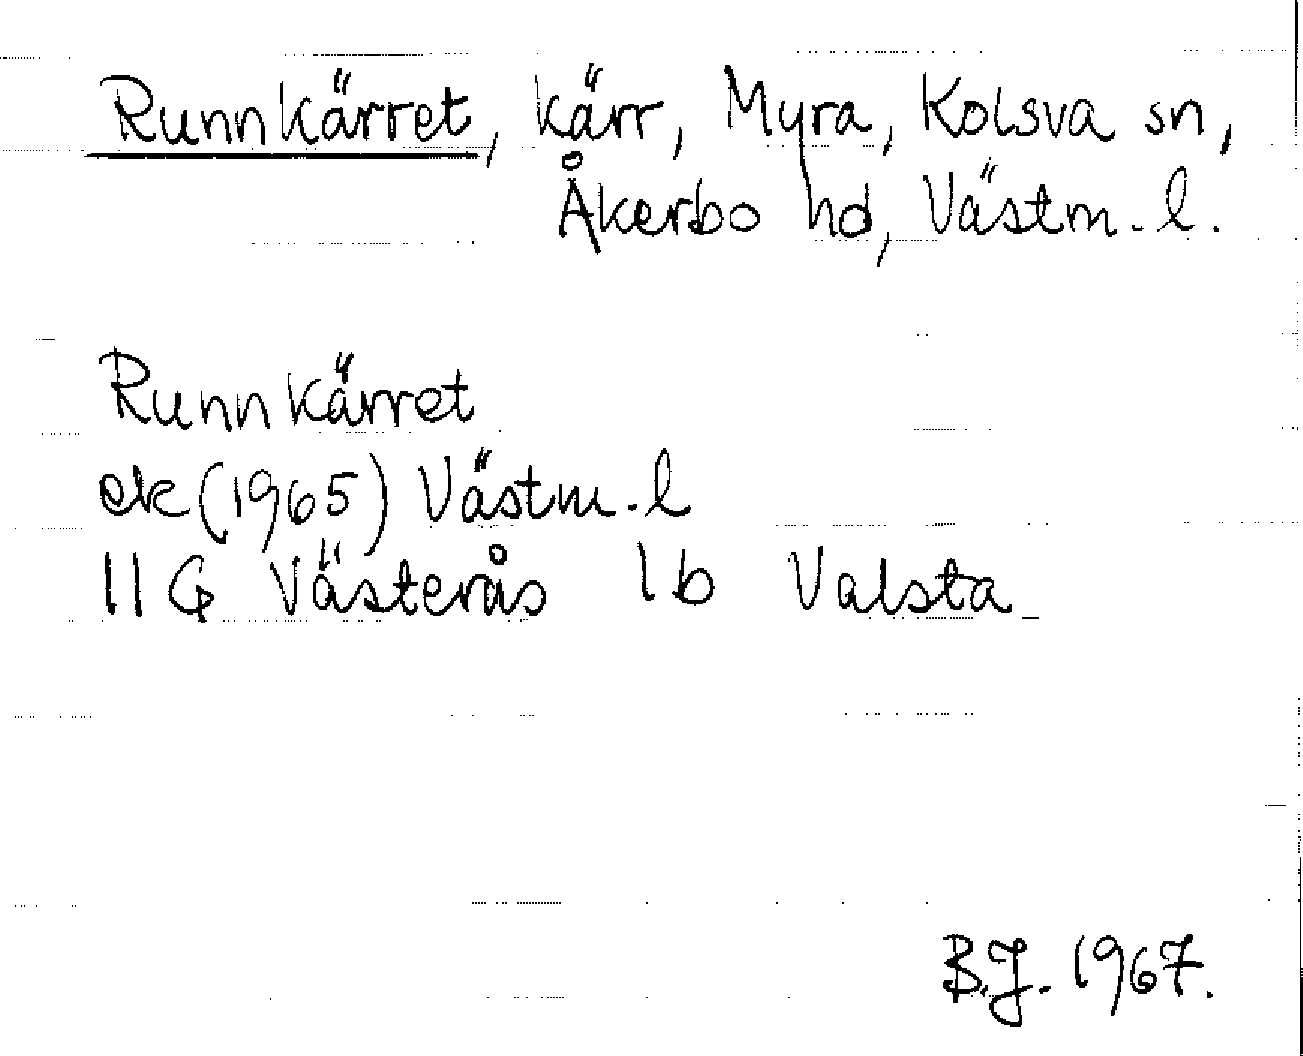 Runnkärret, kärr, Myra, Kolsva sn,
Åkerbo hd, Västm.l.
Runnkärret
ek (1965) Västm.l
11G Västerås 1b Valsta
B.J. 1967.